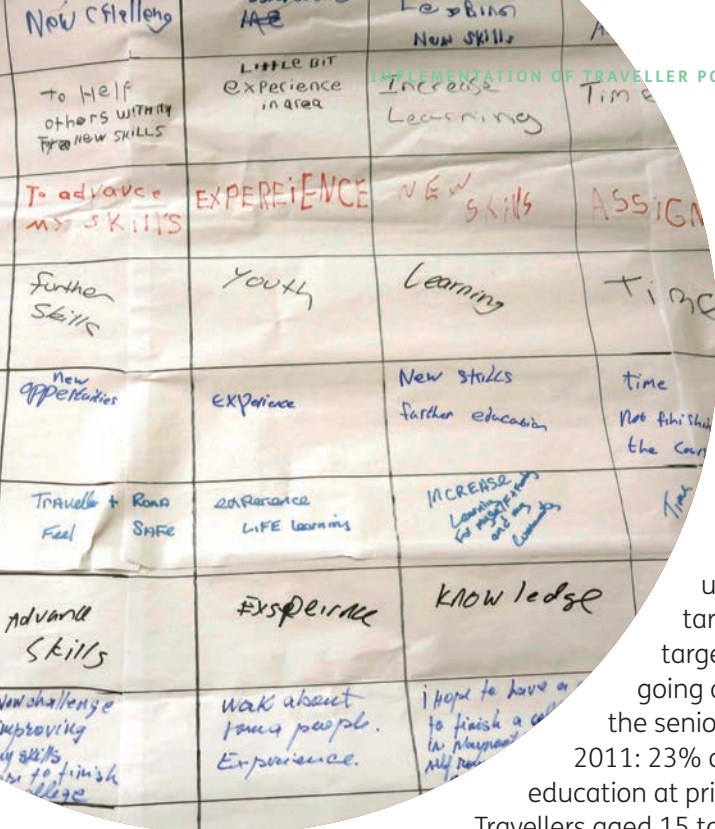 New Challeng
Age
Learning
New Skills
IMPLEMENTATION OF TRAVELLER PO
To Help
others with my
New SKILLS
LiTTLE BiT
experience
in area
Increase
Learning
Time
To advavce
my SKiLLS
EXPEREiENCE
NEW
SKills
ASSiGN
further
Skills
Youth
Learning
Time
new
oppertunities
EXPerience
New skills
further education
time
Not finishin
the Cour
TRAVeller + ROMA
Feel SAFe
exPerience
LIFE learning
INCREASE
Learning
For myself + family
and my
Community
Time
Advance
Skills
Exspeirnce
Know ledge
New challenge
improving
my skills
to finish
college
Wok about
roma people.
Experience.
i hope to have a
to finish a
in
u
tar
targe
going o
the senio
2011: 23% o
education at pri
Travellers aged 15 to